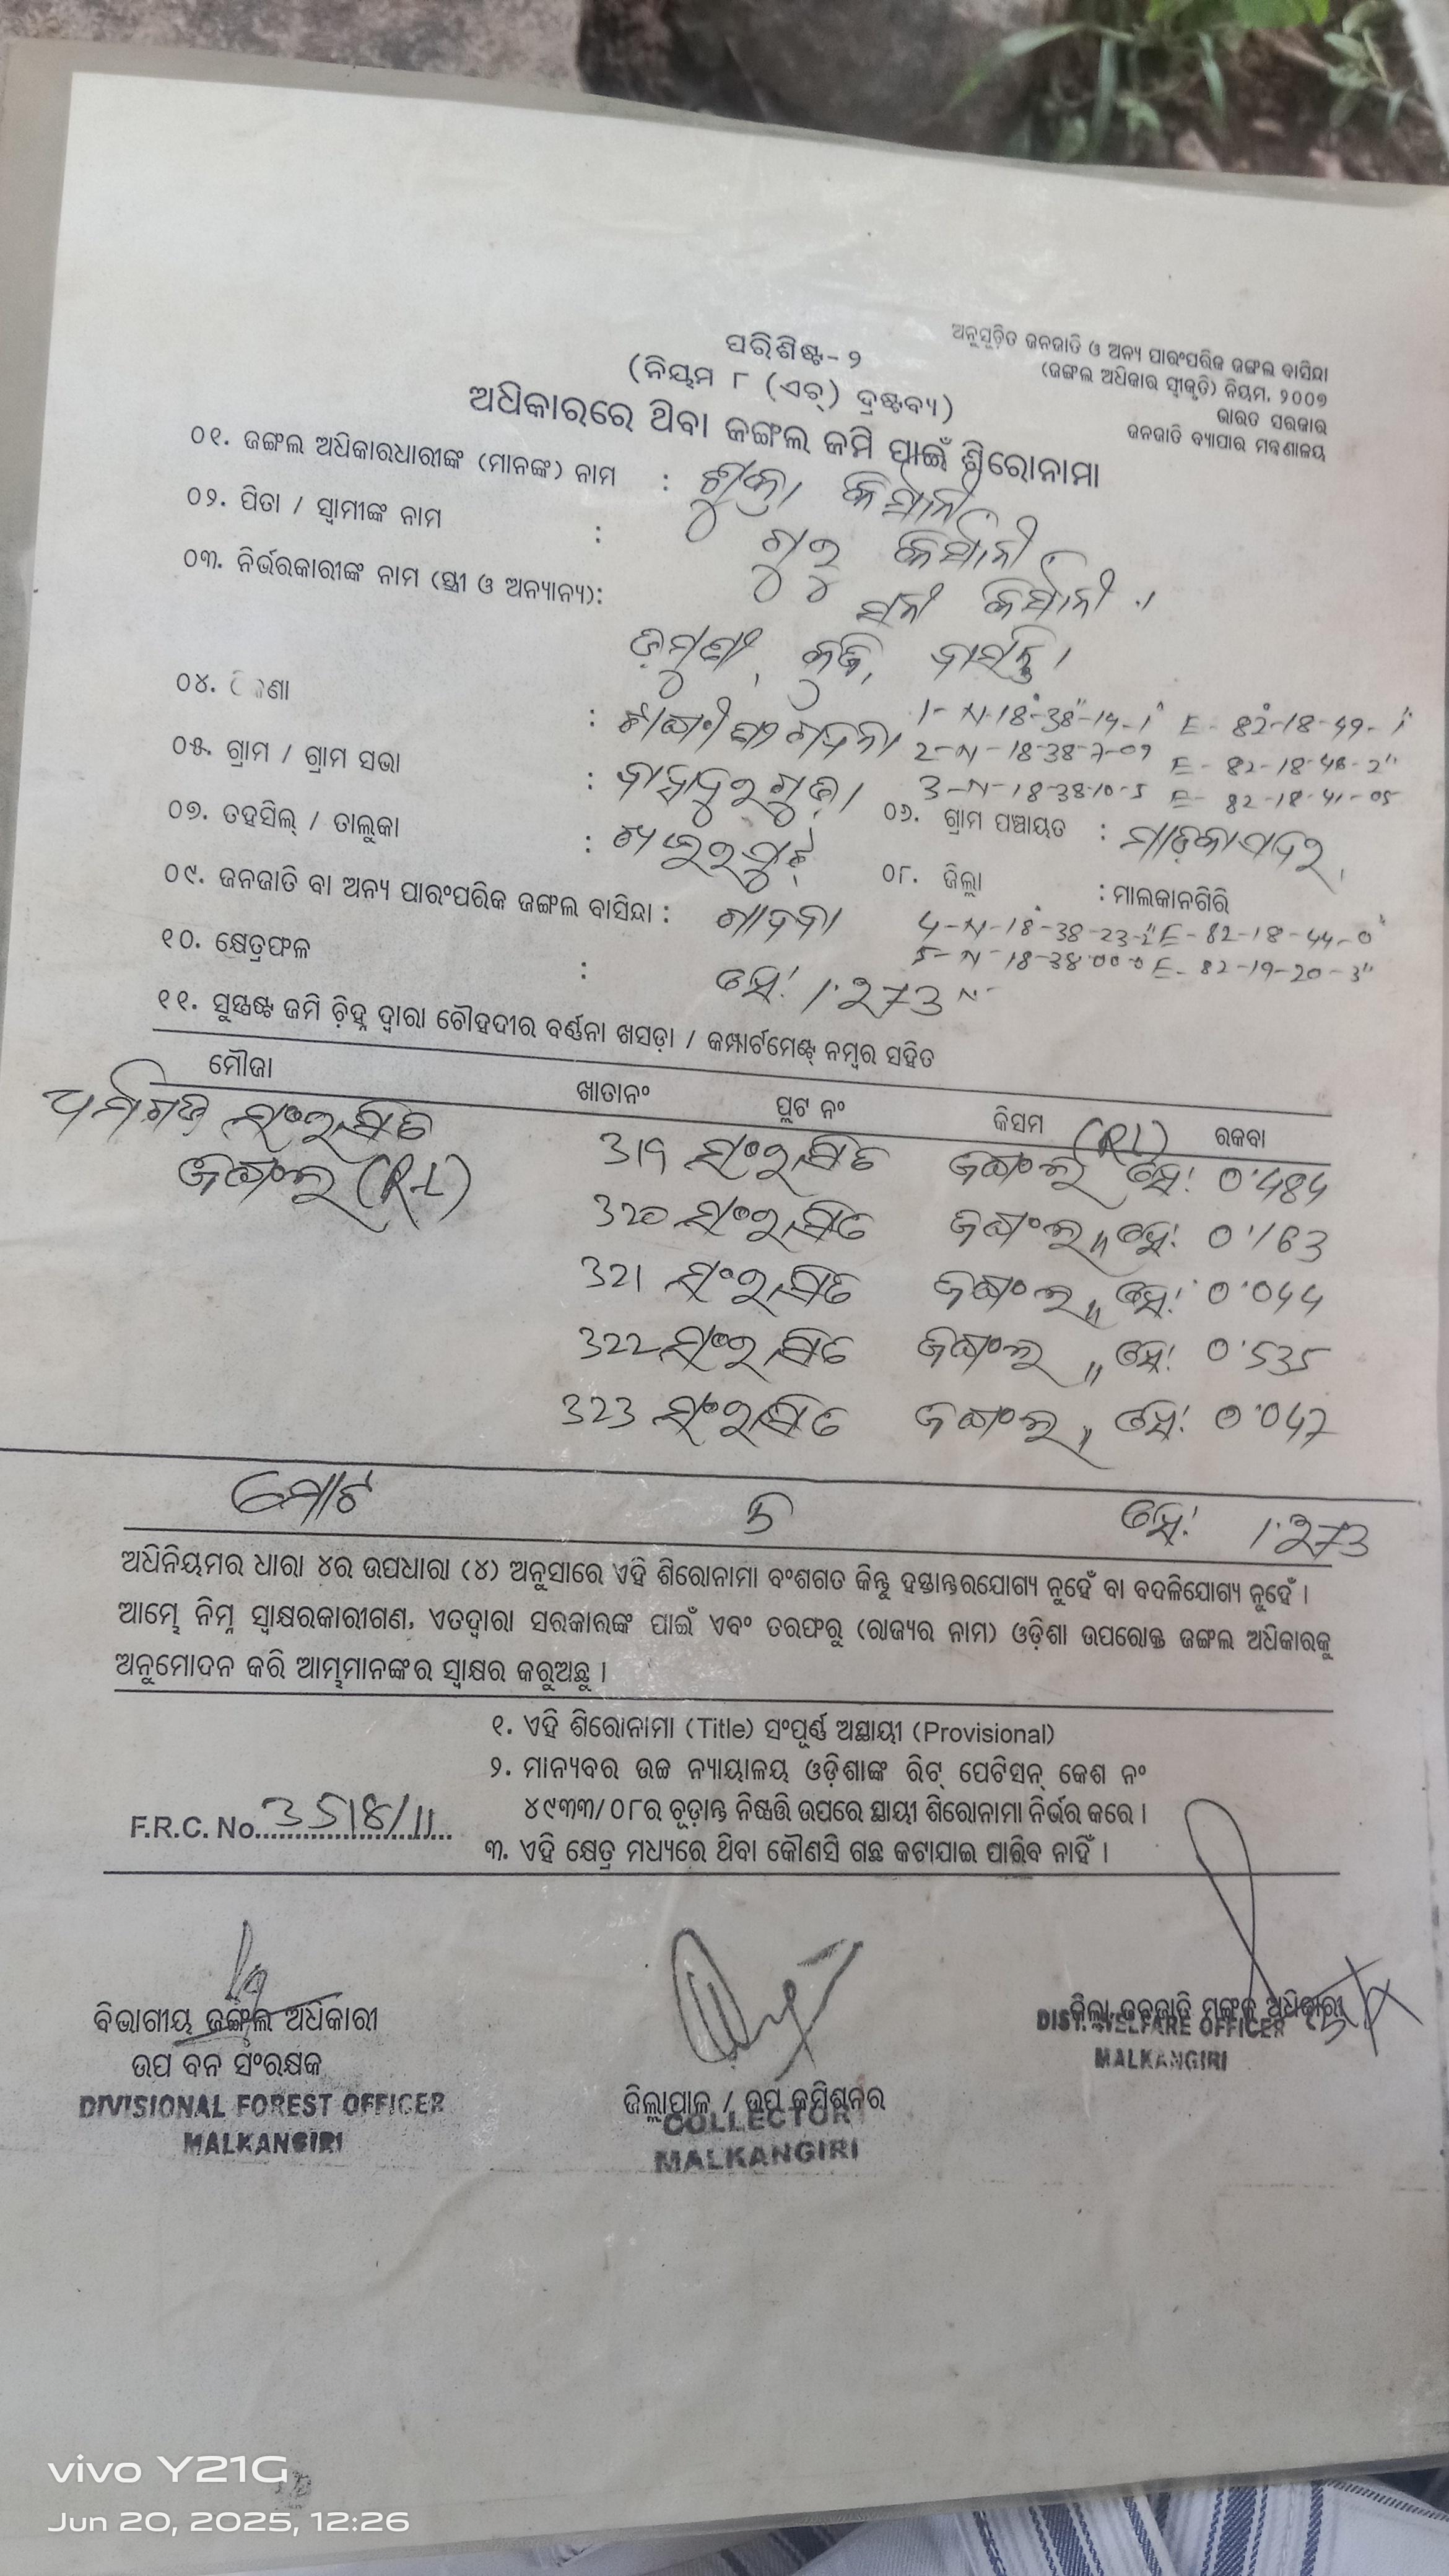 ଅନୁସୂଚିତ ଜନଜାତି ଓ ଅନ୍ୟ ପାରଂପରିକ ଜଙ୍ଗଲ ବାସିନ୍ଦା
(ଜଙ୍ଗଲ ଅଧିକାର ସ୍ୱୀକୃତି) ନିୟମ, ୨୦୦୭
ଭାରତ ସରକାର
ଜନଜାତି ବ୍ୟାପାର ମନ୍ତ୍ରଣାଳୟ
ପରିଶିଷ୍ଟ-୨
(ନିୟମ ୮ (ଏଚ୍) ଦ୍ରଷ୍ଟବ୍ୟ)
ଅଧିକାରରେ ଥିବା ଜଙ୍ଗଲ ଜମି ପାଇଁ ଶିରୋନାମା
୦୧. ଜଙ୍ଗଲ ଅଧିକାରଧାରୀଙ୍କ (ମାନଙ୍କ) ନାମ :
୦୨. ପିତା / ସ୍ୱାମୀଙ୍କ ନାମ : ଗୁରୁ
୦୩. ନିର୍ଭରକାରୀଙ୍କ ନାମ (ସ୍ତ୍ରୀ ଓ ଅନ୍ୟାନ୍ୟ):
୦୪. :
1- N-18°-38"-14-1" E- 82-18-49-1"
2-N-18-38-7-09 E- 82-18-48-2"
3-N-18-38-10-5 E- 82-18-41-05
୦୫. ଗ୍ରାମ / ଗ୍ରାମ ସଭା :
୦୬. ଗ୍ରାମ ପଞ୍ଚାୟତ :
୦୭. ତହସିଲ୍ / ତାଲୁକା :
୦୮. ଜିଲ୍ଲା : ମାଲକାନଗିରି
୦୯. ଜନଜାତି ବା ଅନ୍ୟ ପାରଂପରିକ ଜଙ୍ଗଲ ବାସିନ୍ଦା :
4-N-18-38-23-2" E-82-18-44-0"
5-N-18-38-00-0 E-82-19-20-3"
୧୦. କ୍ଷେତ୍ରଫଳ : ହେ: 1.273
୧୧. ସୁସ୍ପଷ୍ଟ ଜମି ଚିହ୍ନ ଦ୍ୱାରା ଚୌହଦୀର ବର୍ଣ୍ଣନା ଖସଡ଼ା / କମ୍ପାର୍ଟମେଣ୍ଟ୍ ନମ୍ବର ସହିତ
ମୌଜା ଖାତାନଂ ପ୍ଲଟ ନଂ କିସମ ରକବା
ସଂରକ୍ଷିତ 319 ସଂରକ୍ଷିତ ଜଙ୍ଗଲ (RL) ହେ: 0.484
ଜଙ୍ଗଲ (RL)
320 ସଂରକ୍ଷିତ ଜଙ୍ଗଲ " ହେ: 0.163
321 ସଂରକ୍ଷିତ ଜଙ୍ଗଲ " ହେ: 0.044
322 ସଂରକ୍ଷିତ ଜଙ୍ଗଲ " ହେ: 0.535
323 ସଂରକ୍ଷିତ ଜଙ୍ଗଲ " ହେ: 0.047
ମୋଟ 5 ହେ: 1.273
ଅଧିନିୟମର ଧାରା ୪ର ଉପଧାରା (୪) ଅନୁସାରେ ଏହି ଶିରୋନାମା ବଂଶଗତ କିନ୍ତୁ ହସ୍ତାନ୍ତରଯୋଗ୍ୟ ନୁହେଁ ବା ବଦଳିଯୋଗ୍ୟ ନୁହେଁ ।
ଆମ୍ଭେ ନିମ୍ନ ସ୍ୱାକ୍ଷରକାରୀଗଣ, ଏତଦ୍ୱାରା ସରକାରଙ୍କ ପାଇଁ ଏବଂ ତରଫରୁ (ରାଜ୍ୟର ନାମ) ଓଡ଼ିଶା ଉପରୋକ୍ତ ଜଙ୍ଗଲ ଅଧିକାରକୁ
ଅନୁମୋଦନ କରି ଆମ୍ଭମାନଙ୍କର ସ୍ୱାକ୍ଷର କରୁଅଛୁ ।
୧. ଏହି ଶିରୋନାମା (Title) ସଂପୂର୍ଣ୍ଣ ଅସ୍ଥାୟୀ (Provisional)
୨. ମାନ୍ୟବର ଉଚ୍ଚ ନ୍ୟାୟାଳୟ ଓଡ଼ିଶାଙ୍କ ରିଟ୍ ପେଟିସନ୍ କେଶ ନଂ
୪୯୩୩/୦୮ର ଚୂଡ଼ାନ୍ତ ନିଷ୍ପତ୍ତି ଉପରେ ସ୍ଥାୟୀ ଶିରୋନାମା ନିର୍ଭର କରେ ।
F.R.C. No.3518/11
୩. ଏହି କ୍ଷେତ୍ର ମଧ୍ୟରେ ଥିବା କୌଣସି ଗଛ କଟାଯାଇ ପାରିବ ନାହିଁ ।
ବିଭାଗୀୟ ଜଙ୍ଗଲ ଅଧିକାରୀ
ଉପ ବନ ସଂରକ୍ଷକ
DIVISIONAL FOREST OFFICER
MALKANGIRI
ଜିଲ୍ଲାପାଳ / ଉପ କମିଶନର
COLLECTOR
MALKANGIRI
ଜିଲ୍ଲା ଜନଜାତି ମଙ୍ଗଳ ଅଧିକାରୀ
DIST. WELFARE OFFICER
MALKANGIRI
vivo Y21G
Jun 20, 2025, 12:26